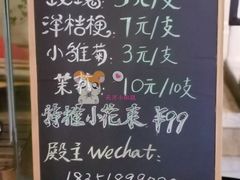 玫瑰:5元/支
洋桔梗:7元/支
小雏菊:3元/支
茉莉:10元/10支
特推小花束 ¥99
殿主wechat: